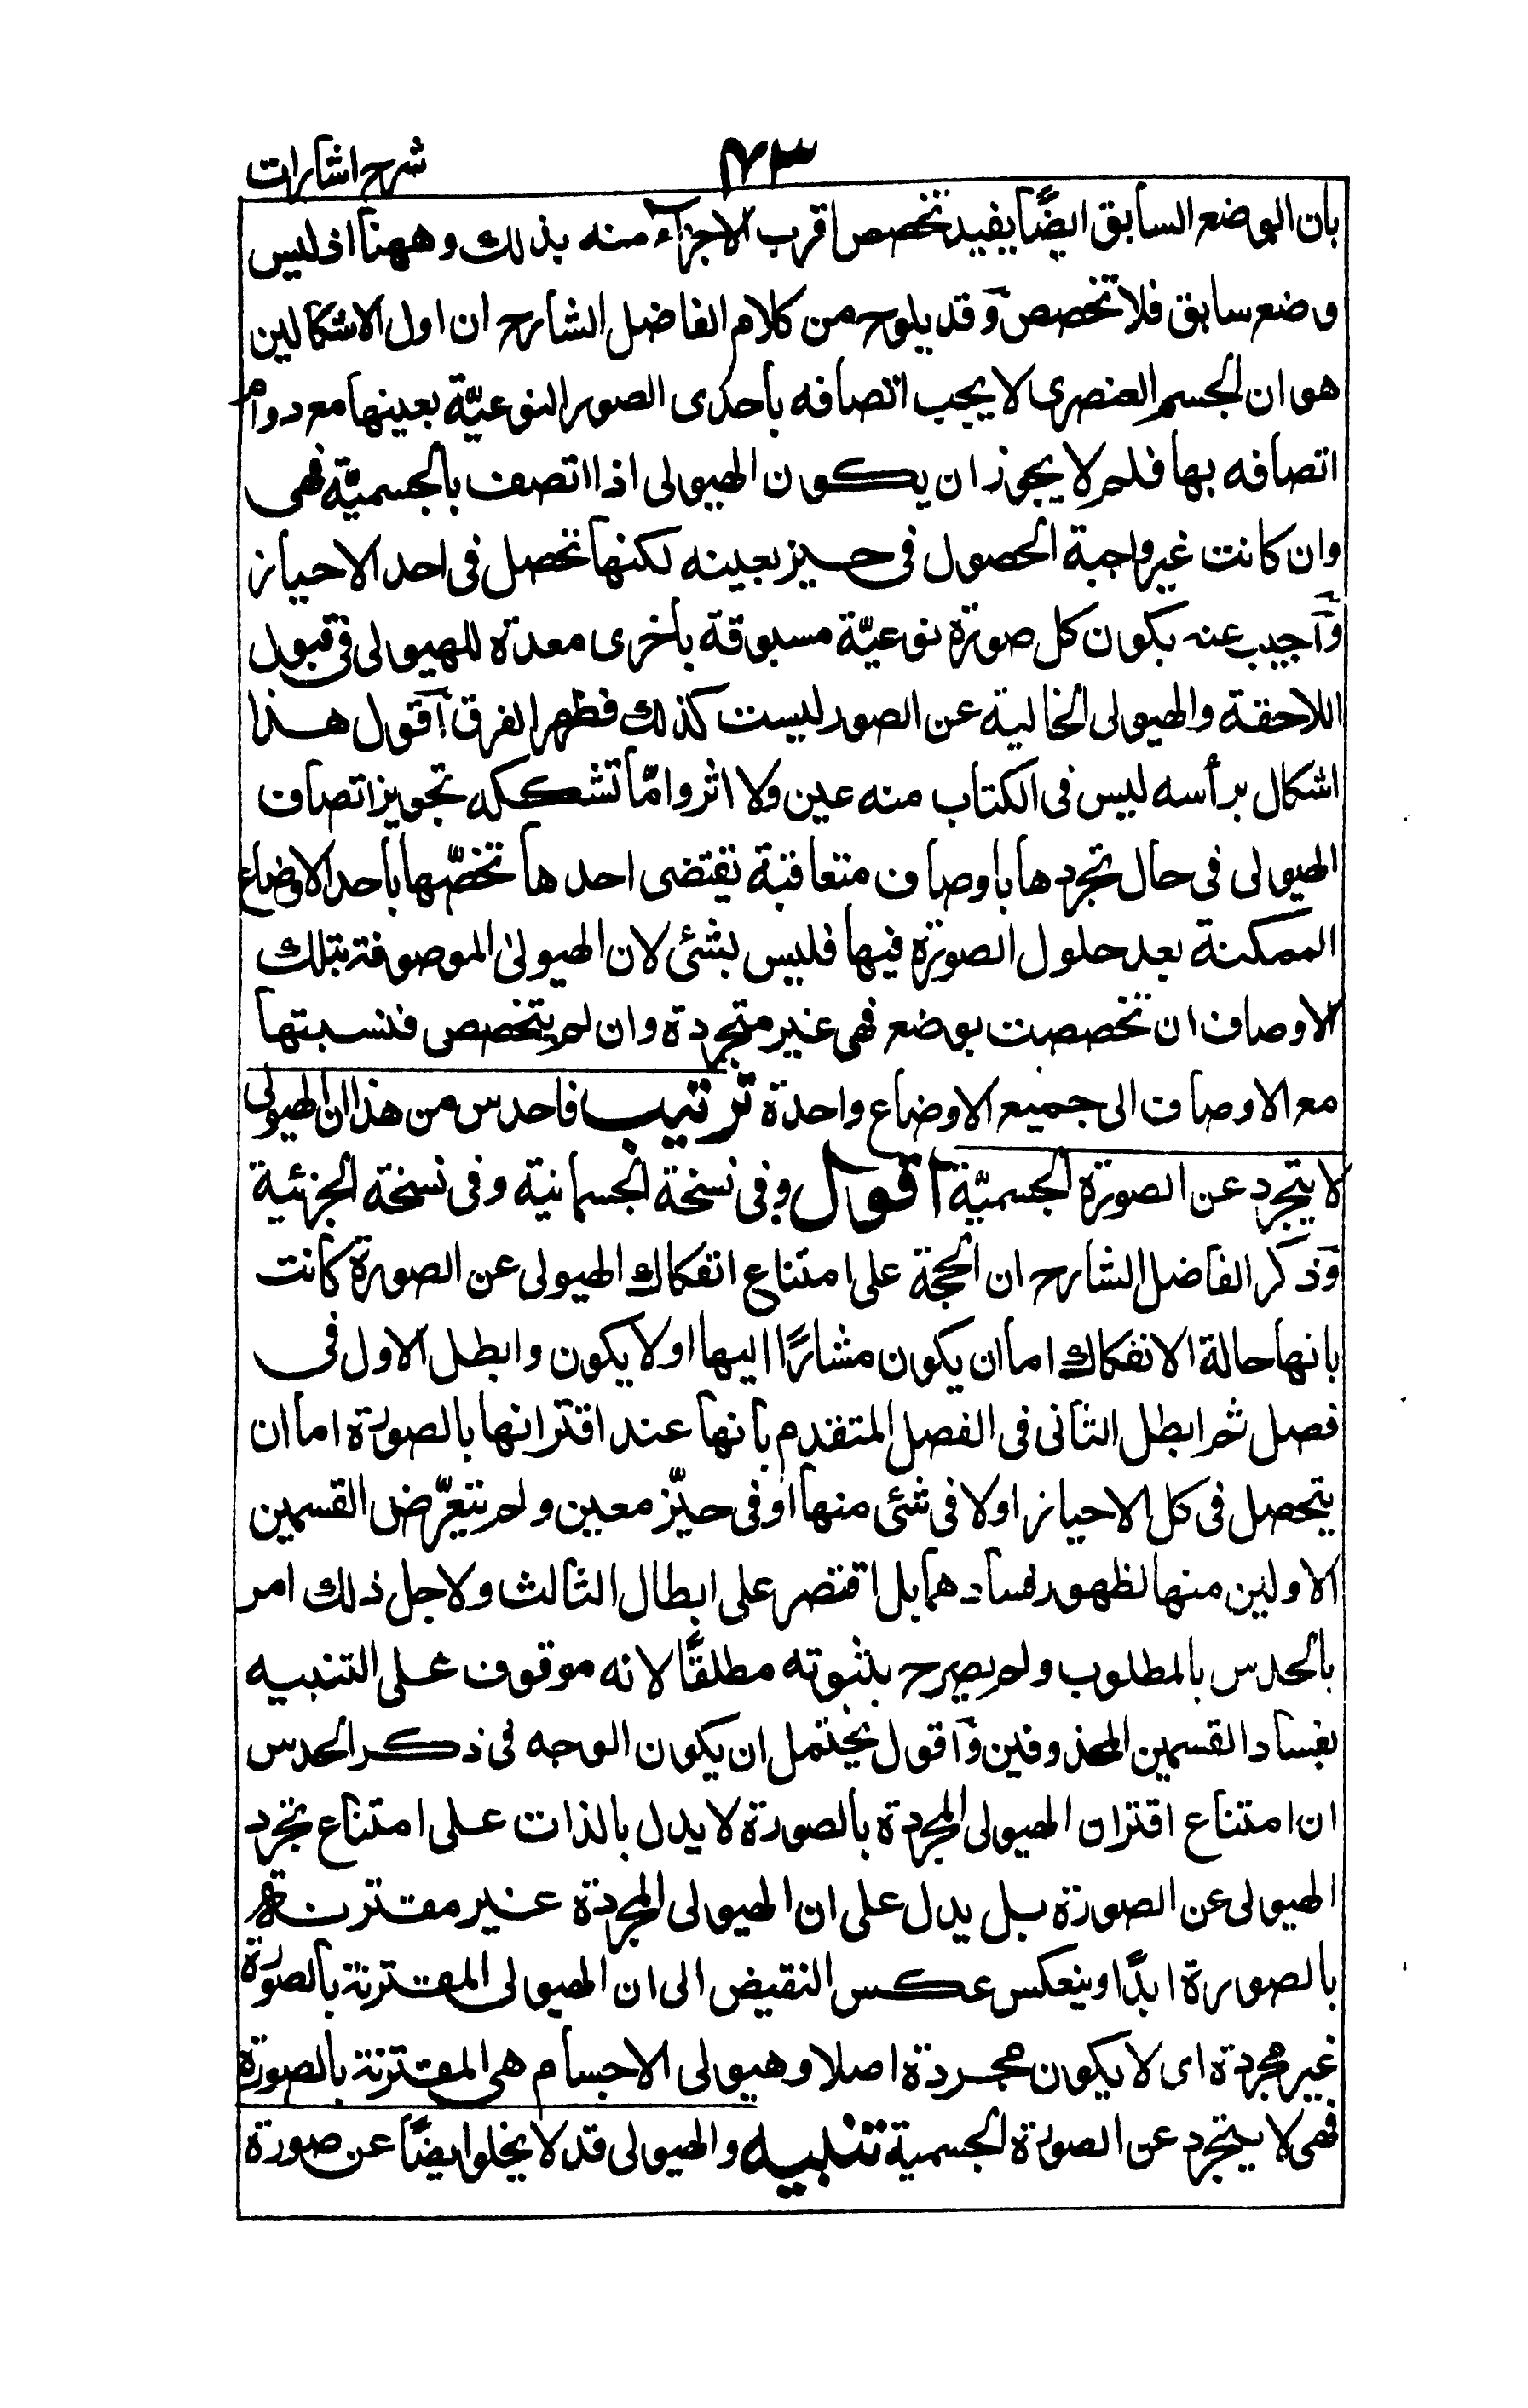 شرح اشارات
٧٣
بان الوضع السابق ايضًا يفيد تخصص اقرب الاجزآء منه بذلك وههنا اذ ليس
وضع سابق فلا تخصص وقد يلوح من كلام الفاضل الشارح ان اول الاشكالين
هو ان الجسم العنصرى لا يجب اتصافه باحدى الصور النوعيّة بعينها مع دوام
اتصافه بها فلم لا يجوز ان يكون الهيولى اذا اتصف بالجسميّة فهى
وان كانت غير واجبة الحصول فى حيز بعينه لكنها تحصل فى احد الاحياز
وآجيب عنه بكون كل صورة نوعيّة مسبوقة باخرى معدة للهيولى فى قبول
اللاحقة والهيولى الخالية عن الصور ليست كذلك فظهر الفرق آقول هذا
اشكال برأسه ليس فى الكتاب منه عين ولا اثر وامّا تشككه تجويز اتصاف
الهيولى فى حال تجردها باوصاف متعاقبة تقتضى احدها تخصّها باحد الاوضاع
الممكنة بعد حلول الصورة فيها فليس بشئ لان الهيولى الموصوفة بتلك
الاوصاف ان تخصصت بوضع فهى غير متجردة وان لم يتخصص فنسبتها
مع الاوصاف الى جميع الاوضاع واحدة ترتيب فاحدس من هذا ان الهيولى
لا يتجرد عن الصورة الجسميّة اقول وفى نسخة الجسمانية وفى نسخة الجزئية
وذكر الفاضل الشارح ان الحجة على امتناع انفكاك الهيولى عن الصورة كانت
بانها حالة الانفكاك اما ان يكون مشارًا اليها او لا يكون وابطل الاول فى
فصل ثم ابطل الثانى فى الفصل المتقدم بانها عند اقترانها بالصورة اما ان
يتحصل فى كل الاحياز او لا فى شئ منها او فى حيّز معين ولم يتعرّض القسمين
الاولين منها لظهور فسادهما بل اقتصر على ابطال الثالث ولاجل ذلك امر
بالحدس بالمطلوب ولم يصرح بثبوته مطلقًا لانه موقوف على التنبيه
بفساد القسمين المحذوفين وآقول يحتمل ان يكون الوجه فى ذكر الحدس
ان امتناع اقتران الهيولى المجردة بالصورة لا يدل بالذات على امتناع تجرد
الهيولى عن الصورة بل يدل على ان الهيولى المجردة غير مقترنة
بالصورة ابدًا وينعكس عكس النقيض الى ان الهيولى المقترنة بالصورة
غير مجردة اى لا يكون مجردة اصلا وهيولى الاجسام هى المقترنة بالصورة
فهى لا يتجرد عن الصورة الجسمية تنبيه والهيولى قد لا يخلو ايضًا عن صورة